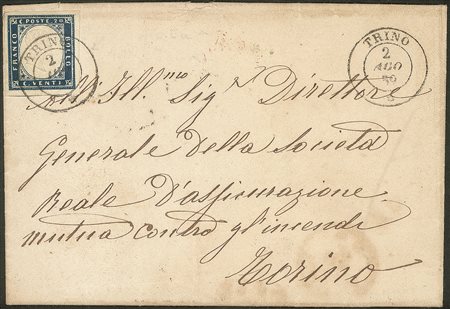 C POSTE 20
FRANCO
BOLLO
C VENTI
TRINO
2
TRINO
2
AGO
59
All' Ill.mo Sig.r Direttore
Generale della Società
Reale d'assicurazione
mutua contro gl'incendi
Torino